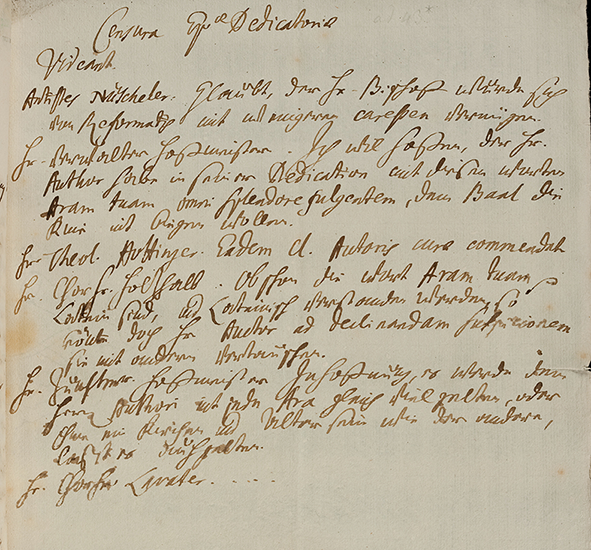 Censura Epae Dedicatoriae
Videant.
Antistes Nüscheler. Glaubt, der Hr. Bischoff würde sich
von Reformatis mit wenigeren caressen vernügen.
Hr. Verwalter Hoffmeister. Ich will hoffen, der Hr.
Author habe in seiner Dedication mit diesen worten
Aram tuam omni splendore fulgentem, dem Baal die
Knie nit biegen wollen.
Hr. Theol. Hottinger. Eadem cl. Autoris curae commendat
Hr. Chorhr. Holtzhalb. Obschon die wort Aram tuam
Latein sind, und Lateinisch verstanden werden, so
könte doch Hr. Auctor ad declinandam suspicionem
sie mit anderen vertauschen.
Hr. Zunfftmr. Hoffmeister. In hoffnung, es werde dem
Herrn Authori nit jede Ara gleich viel gelten, oder
ihme ein Kirchen und Altar sein wie der andere,
laßt es durchgehen.
Hr. Chorhr. Lavater. . . . . .